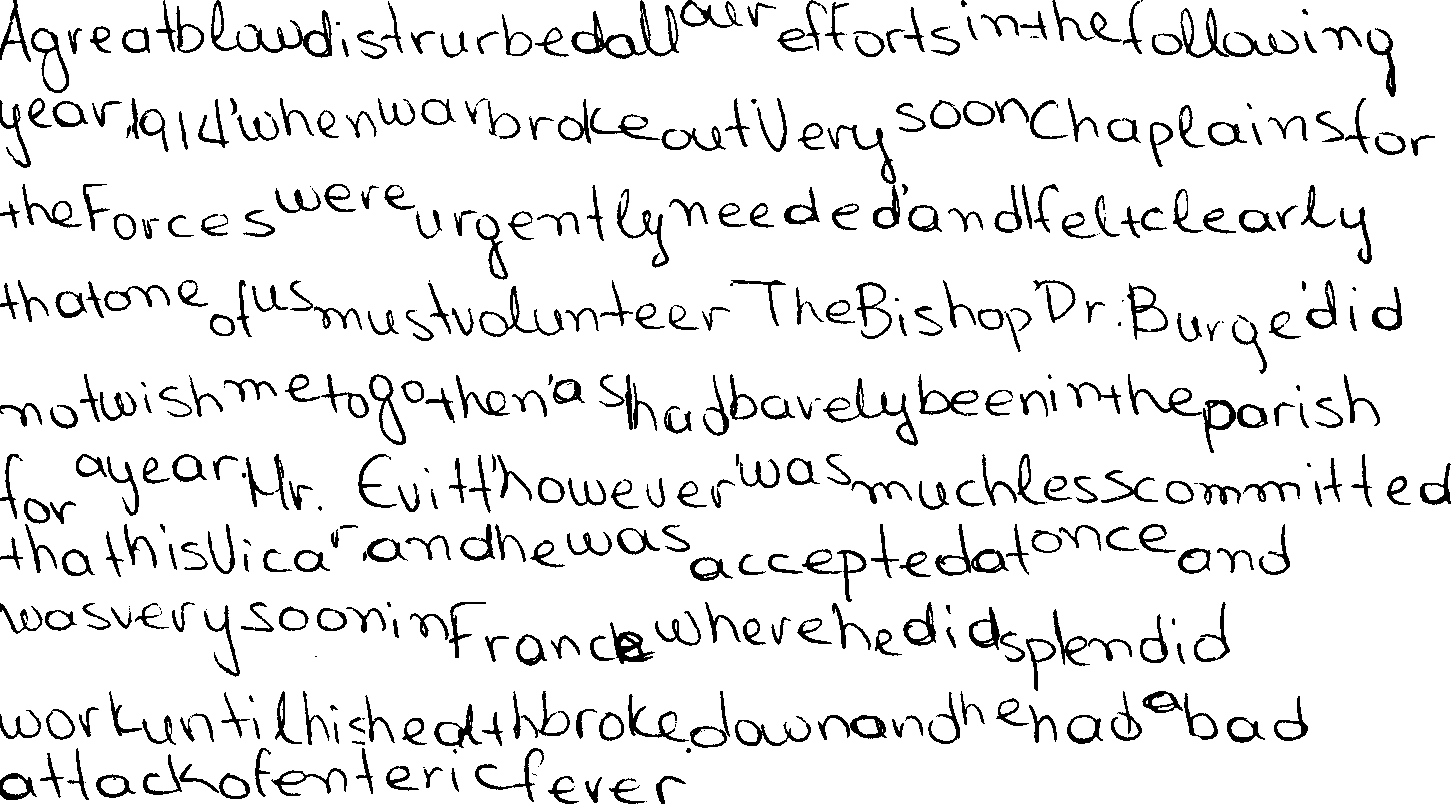 A great blow distrurbed all our efforts in the following
year, 1914' when war broke out. Very soon Chaplains for
the Forces were urgently needed' and I felt clearly
that one of us must volunteer The Bishop' Dr. Burge' did
not wish me to go then' as I had barely been in the parish
for a year. Mr. Evitt' however' was much less committed
that his Vicar and he was accepted at once and
was very soon in France where he did splendid
work until his health broke down and he had a bad
attack of enteric fever